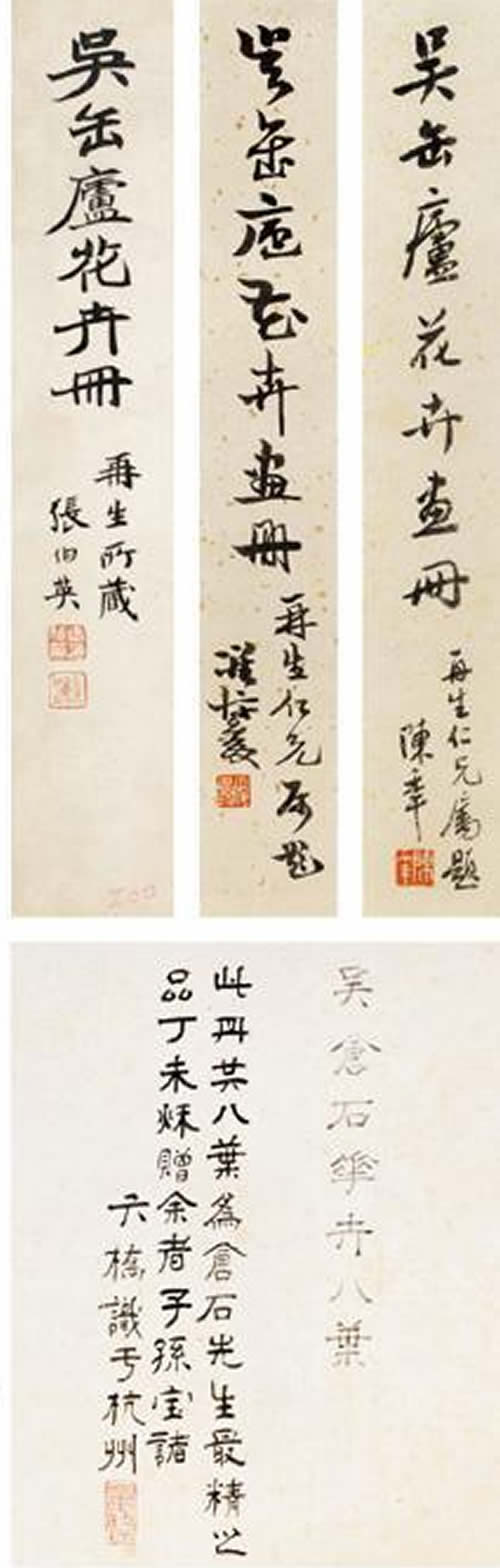 吳缶廬花卉畫冊
再生仁兄屬題
陳年
吳缶廬花卉畫冊
再生仁兄属題
吳缶廬花卉冊
再生所藏
張伯英
吳倉石華卉八葉
此冊共八葉為倉石先生最精之
品丁未秌贈余者子孫宝諸
六橋識于杭州